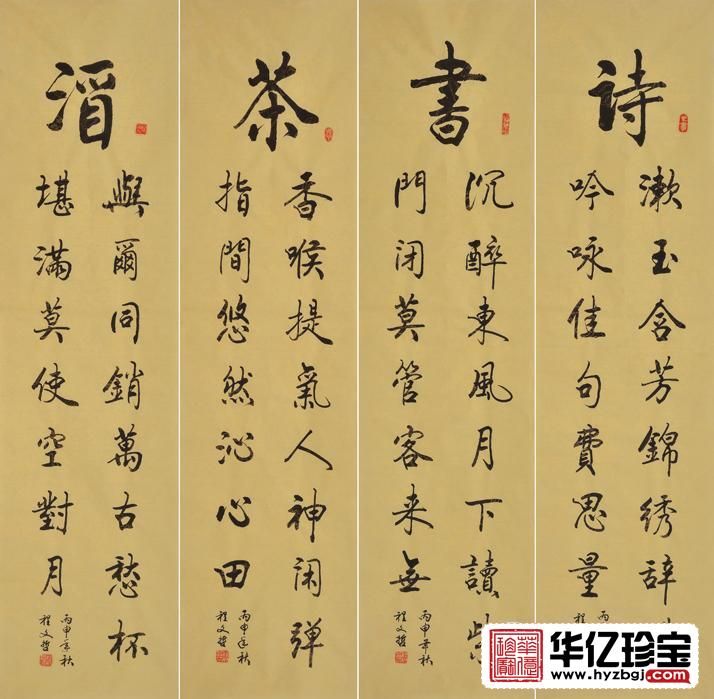 詩
漱玉含芳錦绣辞
吟咏佳句費思量
丙
程
書
沉醉東風月下讀
門闭莫管客来無
丙申年秋
程文哲
茶
香喉提氣人神闲弹
指間悠然沁心田
丙申年秋
程文哲
酒
與爾同銷萬古愁杯
堪滿莫使空對月
丙申年秋
程文哲
华亿珍宝
www.hyzbgj.com